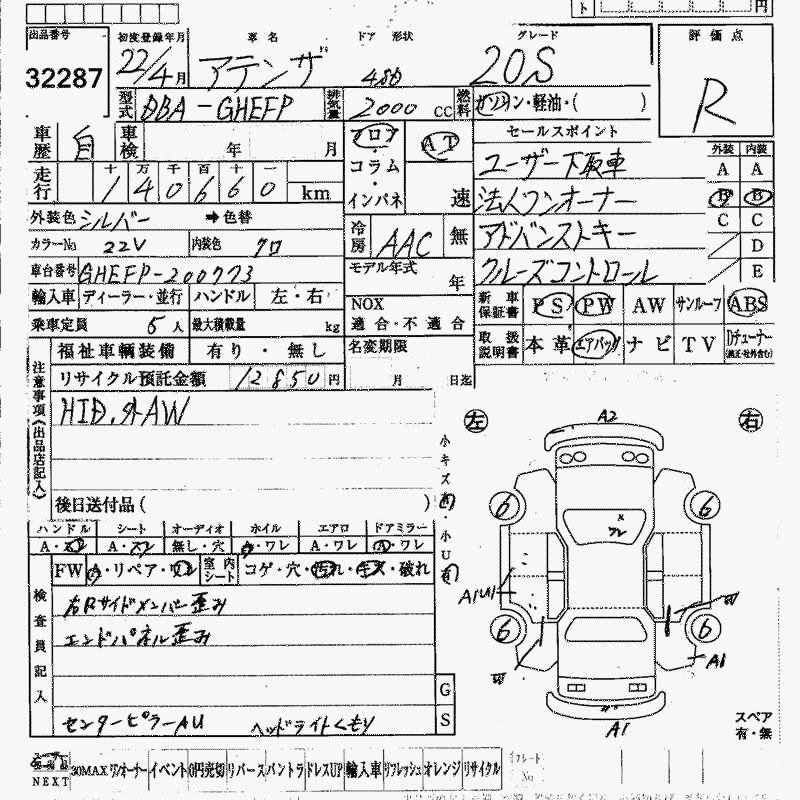 出品番号 初度登録年月 車名 ドア 形状 グレード 評価点
32287 22/4月 アテンザ 4SD 20S R
型式 DBA-GHEFP 排気量 2000 CC 燃料 ガソリン・軽油・( )
車歴 自 車検 年 月 フロア・コラム・インパネ AT 速 セールスポイント
十 万 千 百 十 一
走行 140660 km
ユーザー下取車
法人ワンオーナー
アドバンストキー
クルーズコントロール
外装 内装
A A
B B
C C
D
E
外装色 シルバー ➡色替 冷房 AAC 無
カラーNo 22V 内装色 クロ
車台番号 GHEFP-200773 モデル年式 年
輸入車 ディーラー・並行 ハンドル 左・右 NOX 適合・不適合
乗車定員 5人 最大積載量 kg
新車保証書 PS PW AW サンルーフ ABS
取扱説明書 本革 エアバッグ ナビ TV Dチューナー(純正・社外含む)
福祉車輌装備 有り・無し 名変期限 月 日迄
リサイクル預託金額 12850円
注意事項(出品店記入)
HID.外AW
後日送付品( )
小キズ有・小U有
ハンドル シート オーディオ ホイル エアロ ドアミラー
A・スレ A・スレ 無し・穴 キ・ワレ A・ワレ A・ワレ
FW A・リペア・ワレ 室内シート コゲ・穴・汚れ・キズ・破れ
検査員記入
右Rサイドメンバー歪み
エンドパネル歪み
センターピラーAU ヘッドライトくもり
G
S
左 右
A2
6 6
× ワレ
A1U1 W
6 6
W A1
A1
スペア
有・無
NEXT 30MAX ワンオーナー イベント 0円売切 リバース バントラ ドレスUP 輸入車 リフレッシュ オレンジ リサイクル
プレート
No